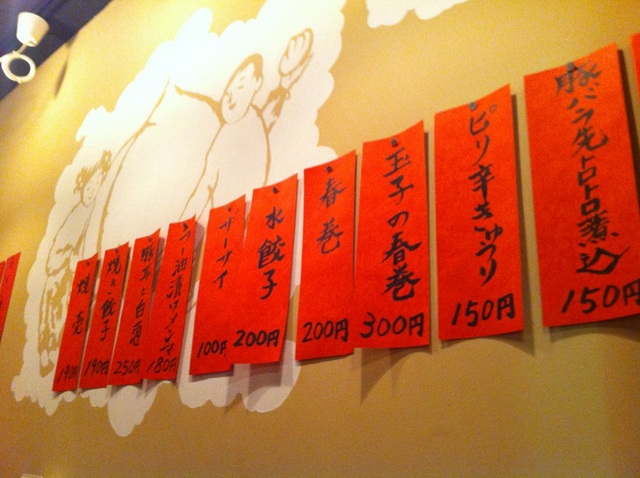 焼売
190円
焼き餃子
190円
豚耳と白葱
250円
ラー油漬けメンマ
180円
ザーサイ
100円
水餃子
200円
春巻
200円
玉子の春巻
300円
ピリ辛きゅうり
150円
豚バラ先トロトロ煮込
150円